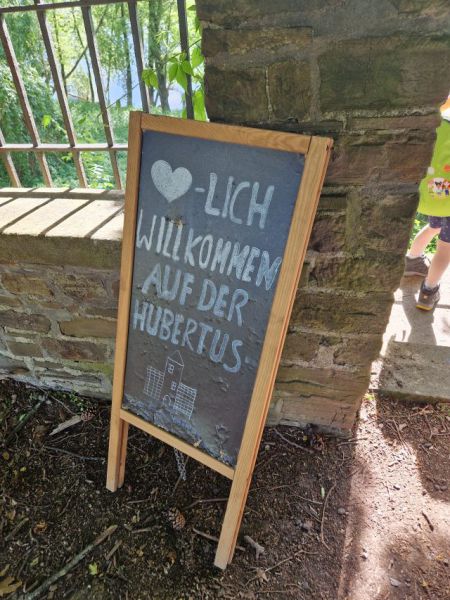 ♥-LICH
WILLKOMMEN
AUF DER
HUBERTUS-